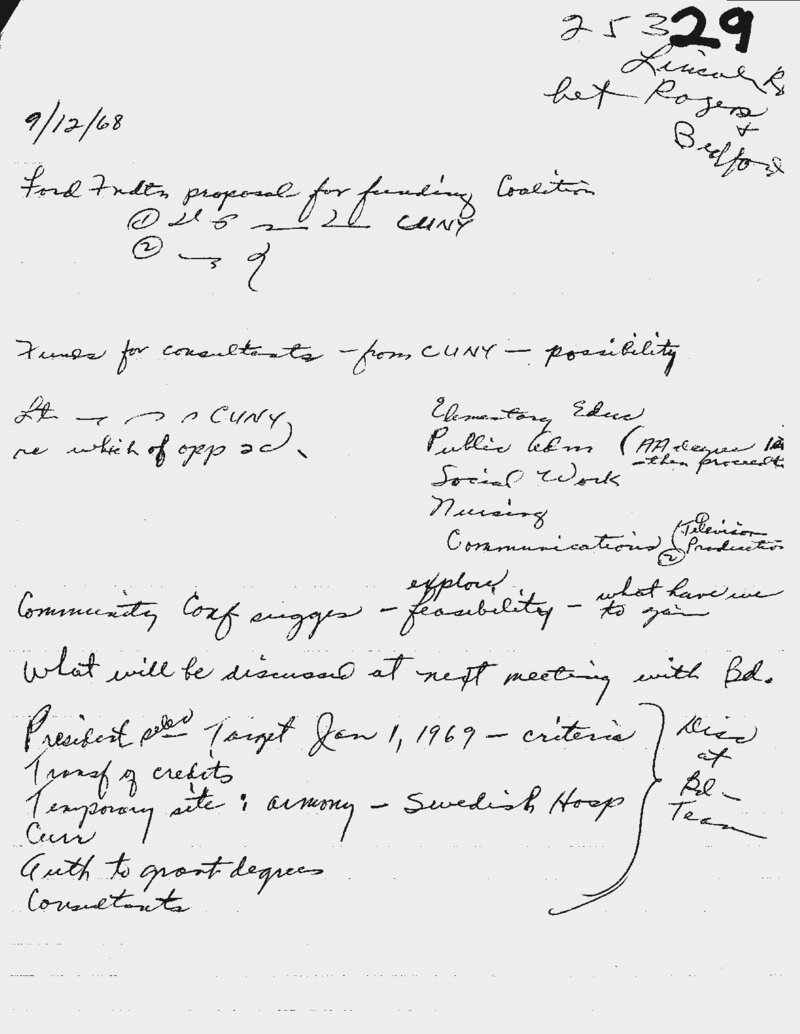 25329
Lincoln
bet Rogers
+
Bedford
9/12/68
Ford Fndtn proposal for funding Coalition
① CUNY
②
Funds for consultants - from CUNY - possibility
CUNY
re which of opp
Elementary Educ
Public Adm (AA degree
- then proceed to
Social Work
Nursing
Communications (① Television
② Production
Community Conf sugges - explore feasibility - what have we
to gain
What will be discussed at next meeting with Bd.
President selec Target Jan 1, 1969 - criteria
Transf of credits
Temporary site : armory - Swedish Hosp
Curr
Auth to grant degrees
Consultants
Disc
at
Bd -
Team